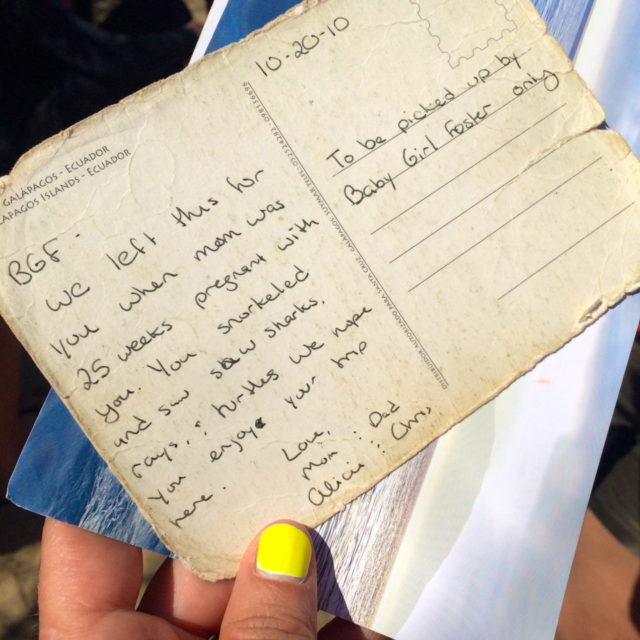 GALÁPAGOS - ECUADOR
APAGOS ISLANDS - ECUADOR
10-20-10
To be picked up by
Baby Girl Foster only
BGF -
We left this for
you when mom was
25 weeks pregnant with
you. You snorkeled
and saw sharks,
rays, & turtles. We hope
you enjoy your trip
here.
Love,
Mom & Dad
Alicia & Chris